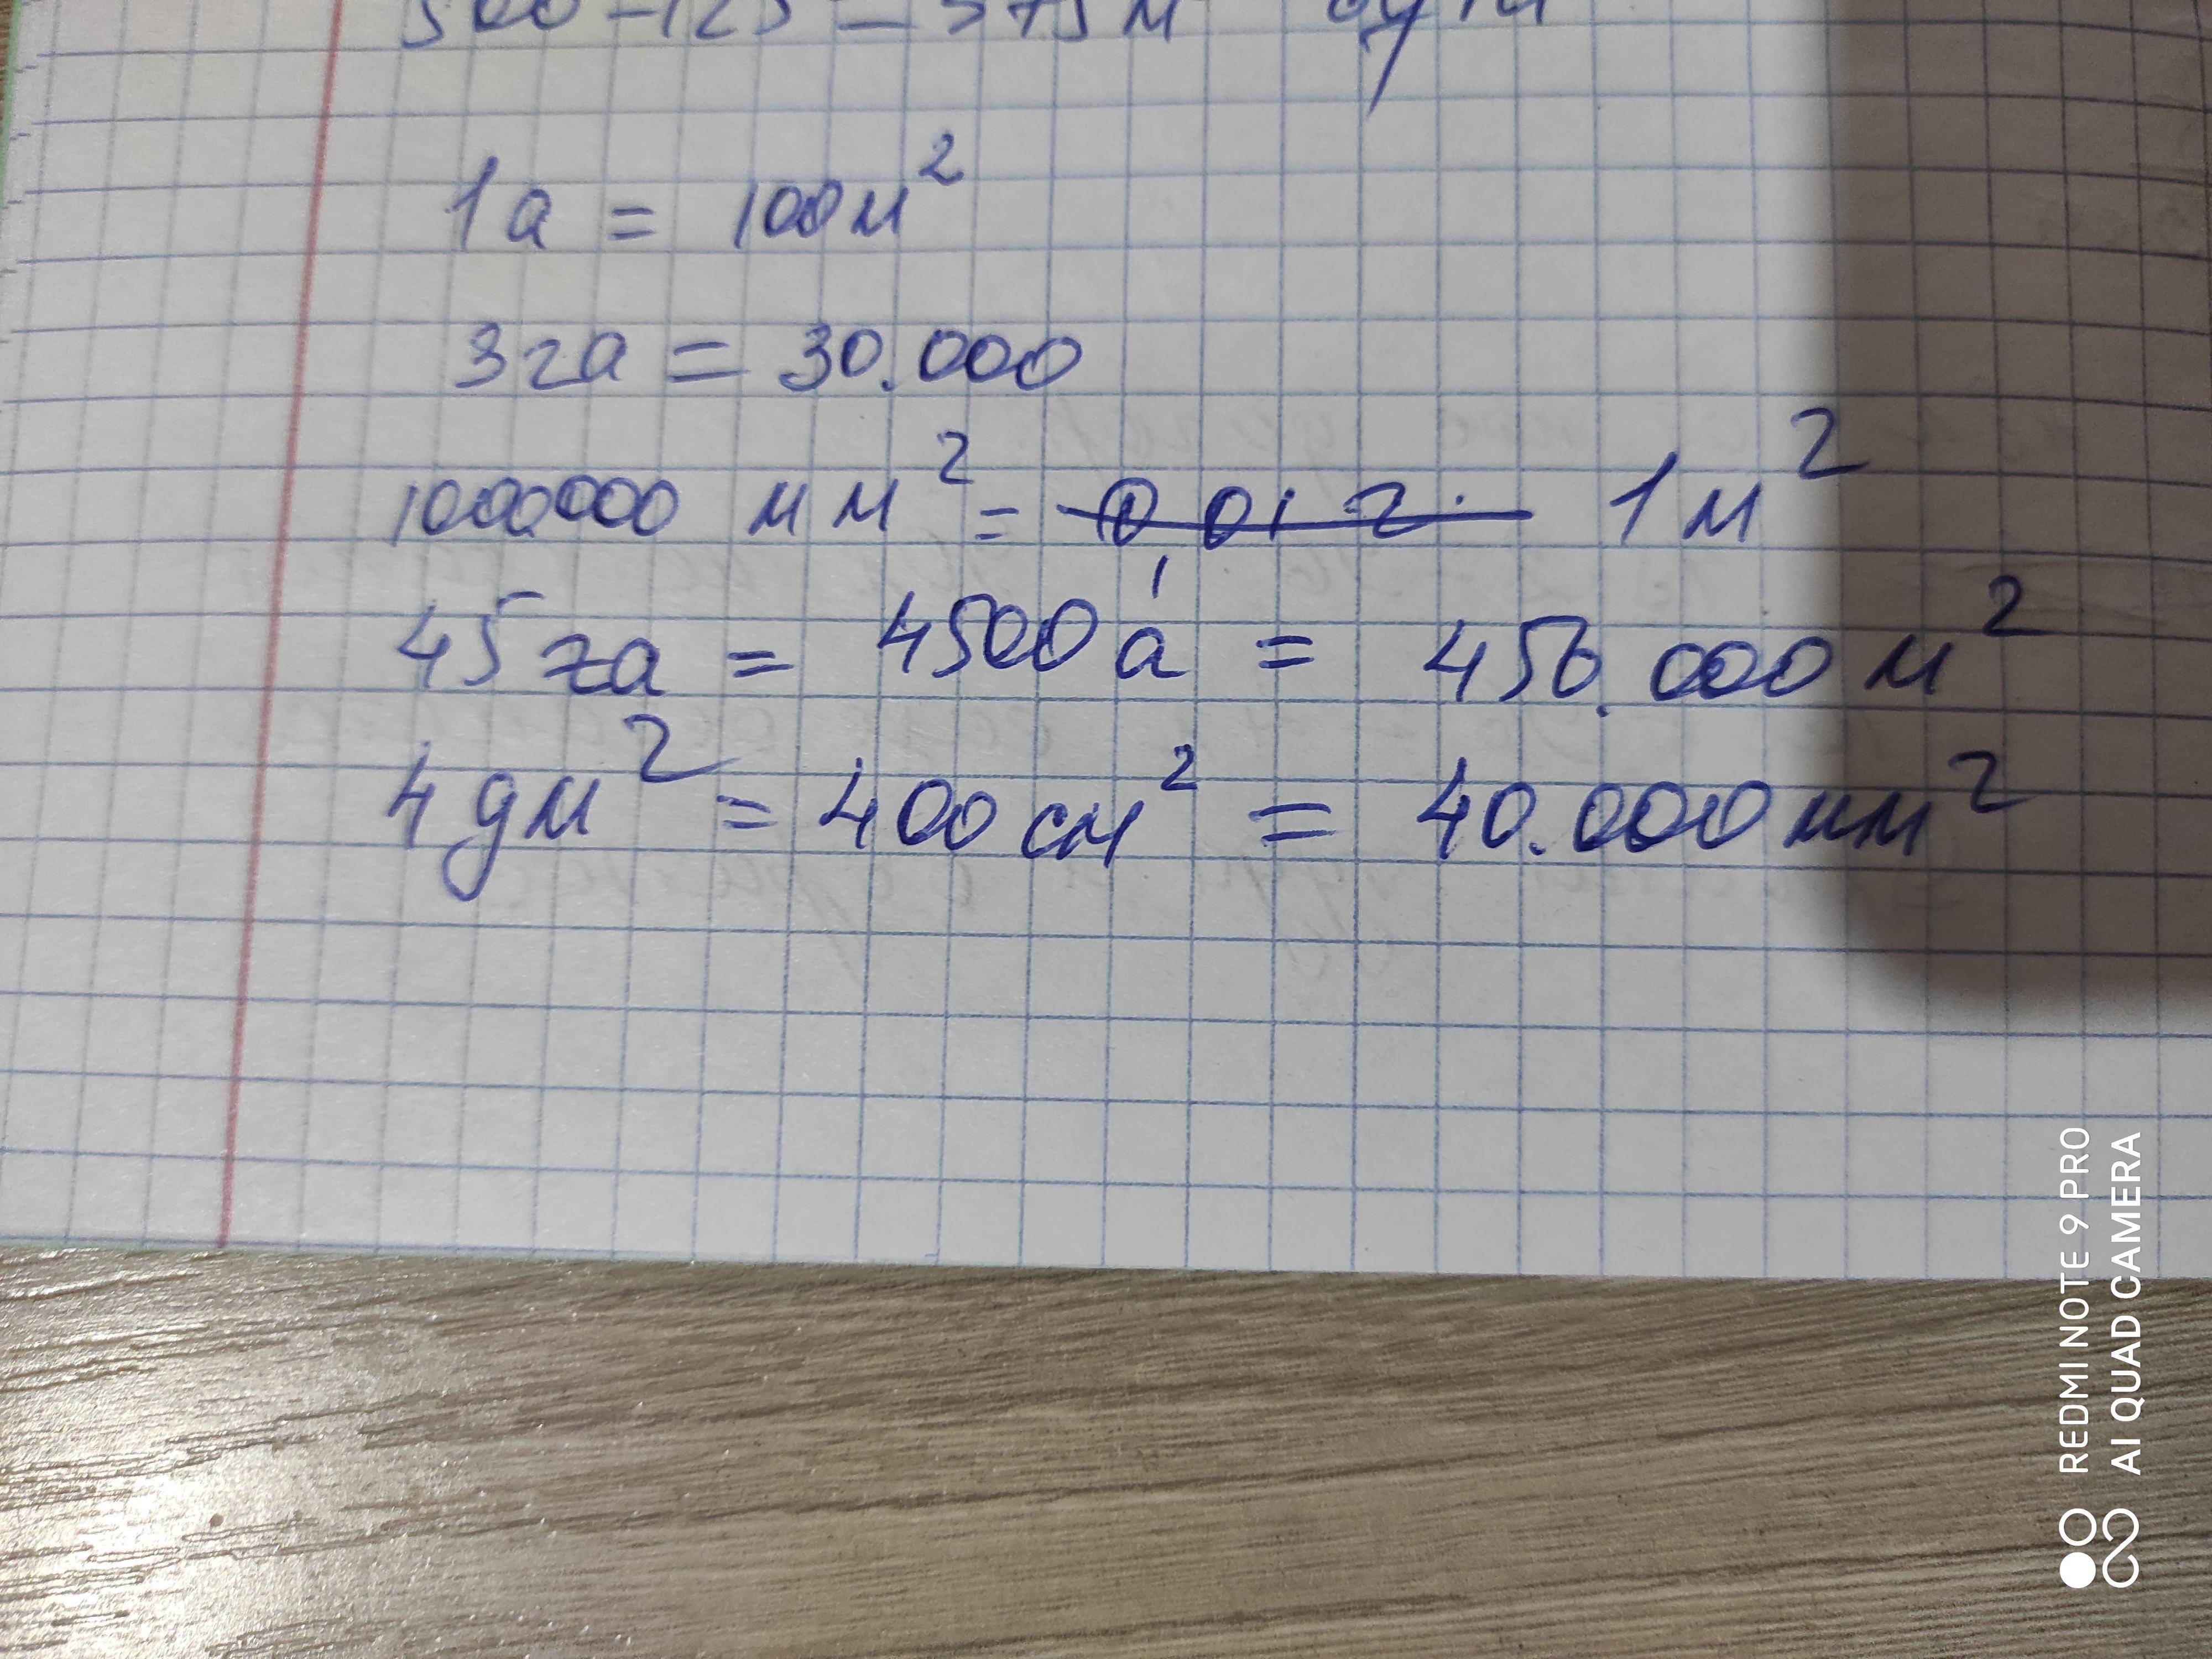 500 - 125 = 375 м
1 а = 100 м²
3 га = 30.000
1000000 мм² = 0,01 г. 1 м²
45 га = 4500 а = 450.000 м²
4 дм² = 400 см² = 40.000 мм²
REDMI NOTE 9 PRO
AI QUAD CAMERA